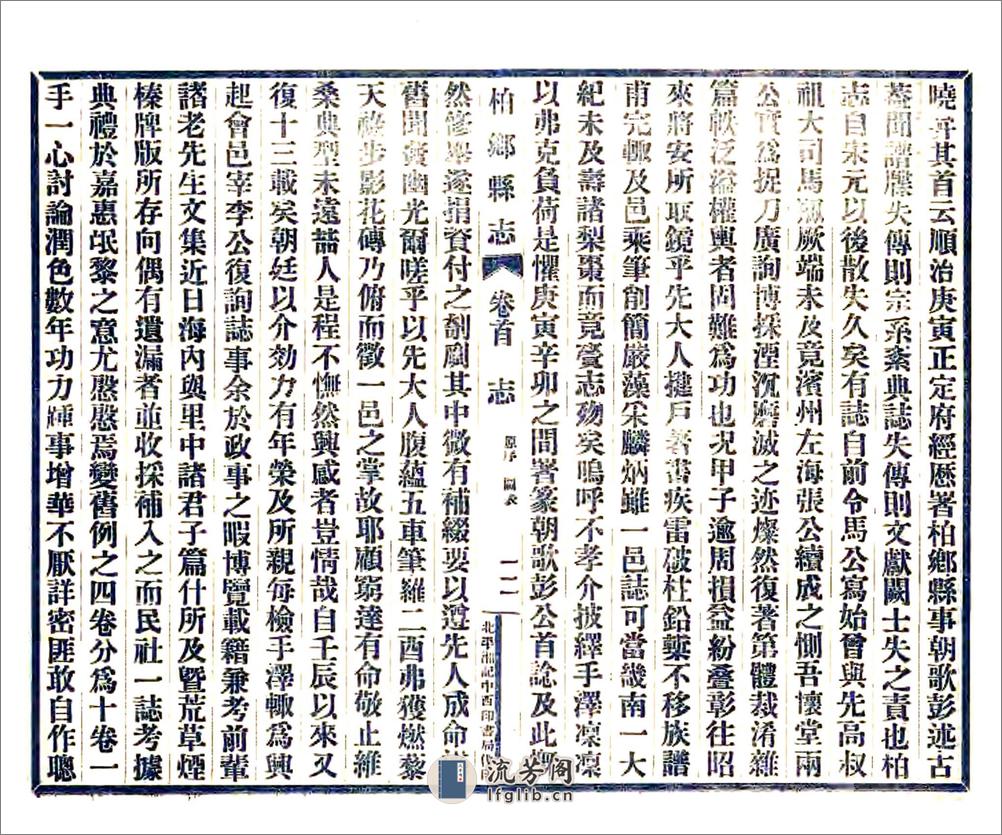 曉弁其首云順治庚寅正定府經歷署柏鄉縣事朝歌彭述古
蓋聞譜牒失傳則宗系紊典誌失傳則文獻闕士失之責也柏
志自宋元以後散失久矣有誌自前令馬公寫始曾與先高叔
祖大司馬 厥端未及竟濱州左海張公續成之惻吾懷堂兩
公實爲捉刀廣詢博採湮沉磨滅之迹燦然復著第體裁淆雜
篇帙泛溢權輿者固難爲功也况甲子逾周損益紛叠彰往昭
來將安所取鏡乎先大人揵戶著書疾雷破柱鉛槧不移族譜
甫完輙及邑乘筆創簡嚴藻宋麟炳雖一邑誌可當畿南一大
紀未及壽諸梨棗而竟賫志歿矣嗚呼不孝介披繹手澤凜凜
以弗克負荷是懼庚寅辛卯之間署篆朝歌彭公首諗及此
柏鄉縣志 卷首 志 原序 圖表 一二 北平湘記中西印書局代印
然修舉遂捐資付之剞劂其中微有補綴要以遵先人成命
舊聞賁幽光爾嗟乎以先大人腹蘊五車筆羅二酉弗獲燃藜
天祿步影花磚乃俯而徵一邑之掌故耶顧窮達有命敬止維
桑典型未遠喆人是程不憮然興感者豈情哉自壬辰以來又
復十三載矣朝廷以介効力有年榮及所親每檢手澤輙爲興
起會邑宰李公復詢誌事余於政事之暇博覽載籍兼考前輩
諸老先生文集近日海內與里中諸君子篇什所及暨荒草煙
榛牌版所存向偶有遺漏者並收採補入之而民社一誌考據
典禮於嘉惠氓黎之意尤慇慇焉變舊例之四卷分爲十卷一
手一心討論潤色數年功力踵事增華不厭詳密匪敢自作聰
流芳阁
lfglib.cn